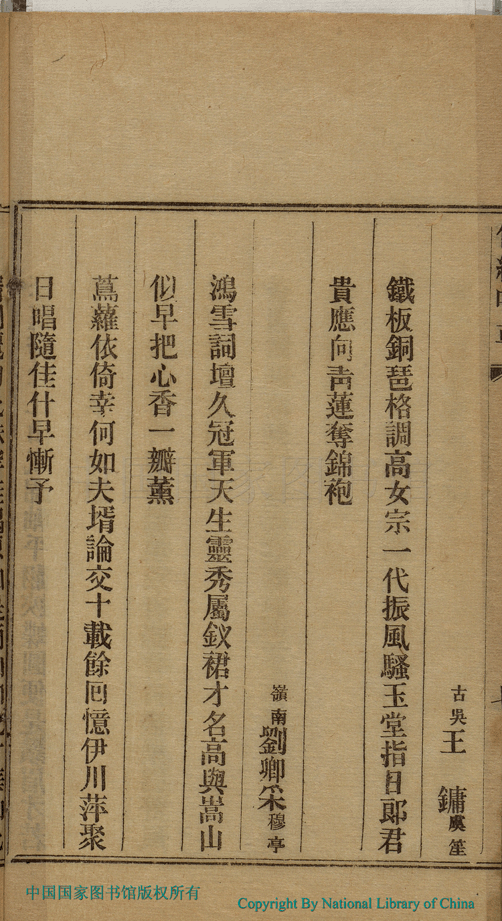 古吳王鏞虞笙
鐵板銅琶格調高女宗一代振風騷玉堂指日郎君
貴應向青蓮奪錦袍
嶺南劉卿采穆亭
鴻雪詞壇久冠軍天生靈秀屬釵裙才名高與嵩山
似早把心香一瓣薰
蔦蘿依倚幸何如夫壻論交十載餘回憶伊川萍聚
日唱隨佳什早慚予
中国国家图书馆版权所有
Copyright By National Library of China